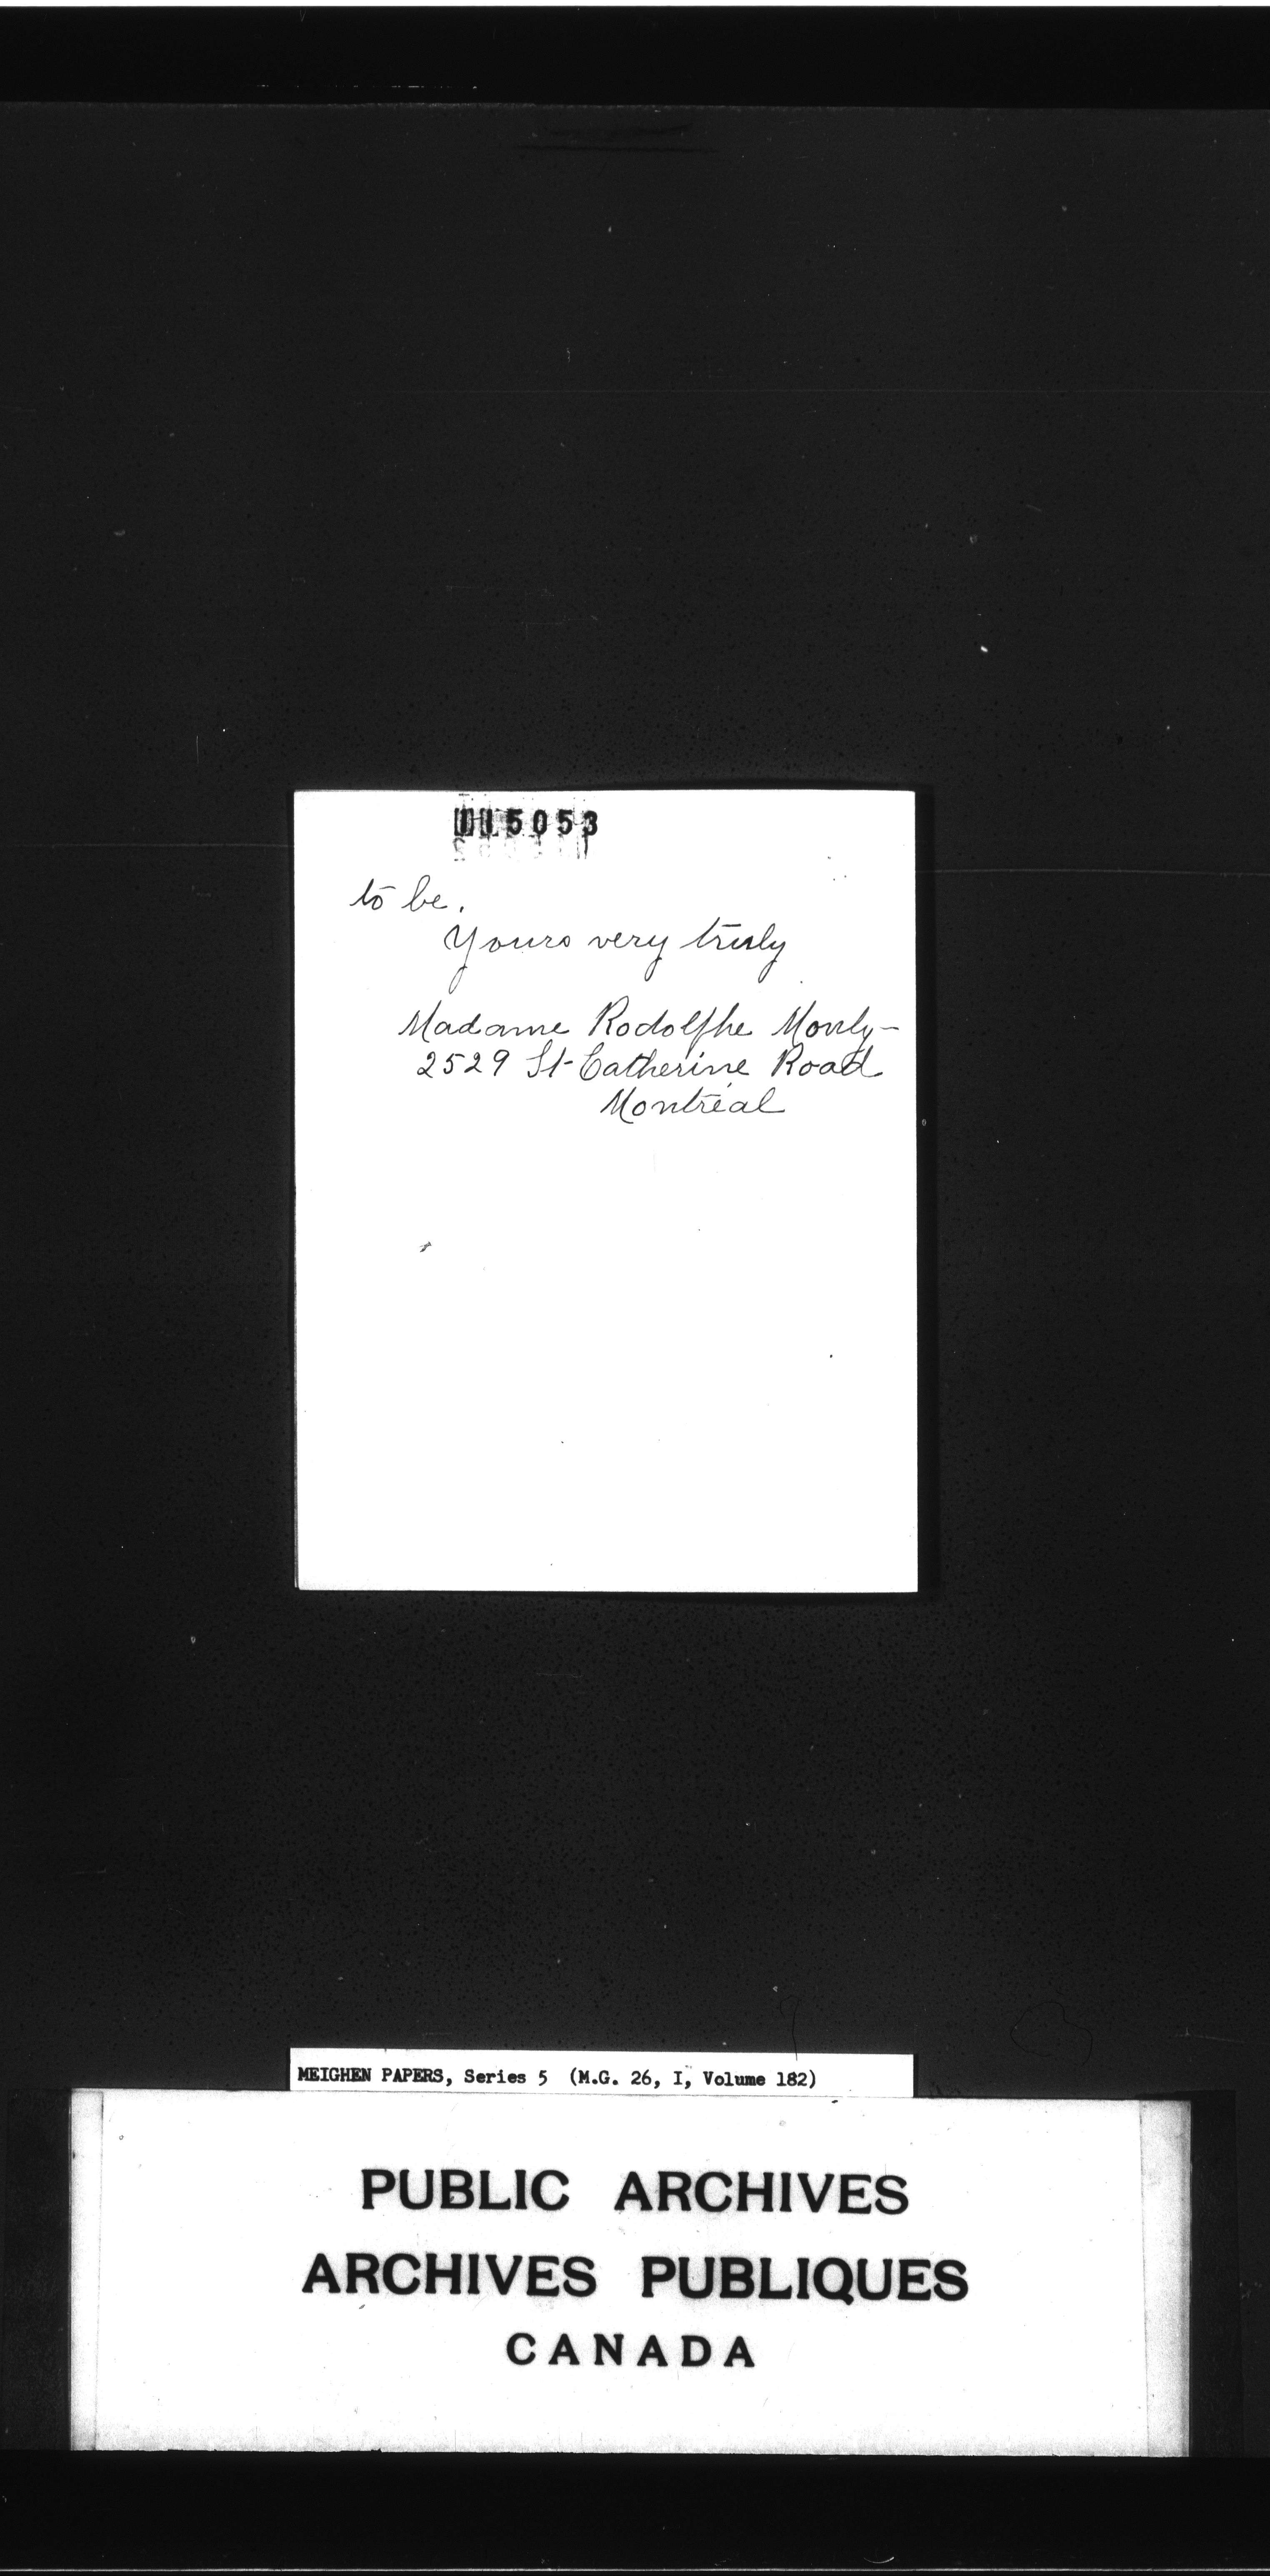 115053
to be.
Yours very truly
Madame Rodolphe Monty-
2529 St-Catherine Road
Montréal
MEIGHEN PAPERS, Series 5 (M.G. 26, I, Volume 182)
PUBLIC ARCHIVES
ARCHIVES PUBLIQUES
CANADA